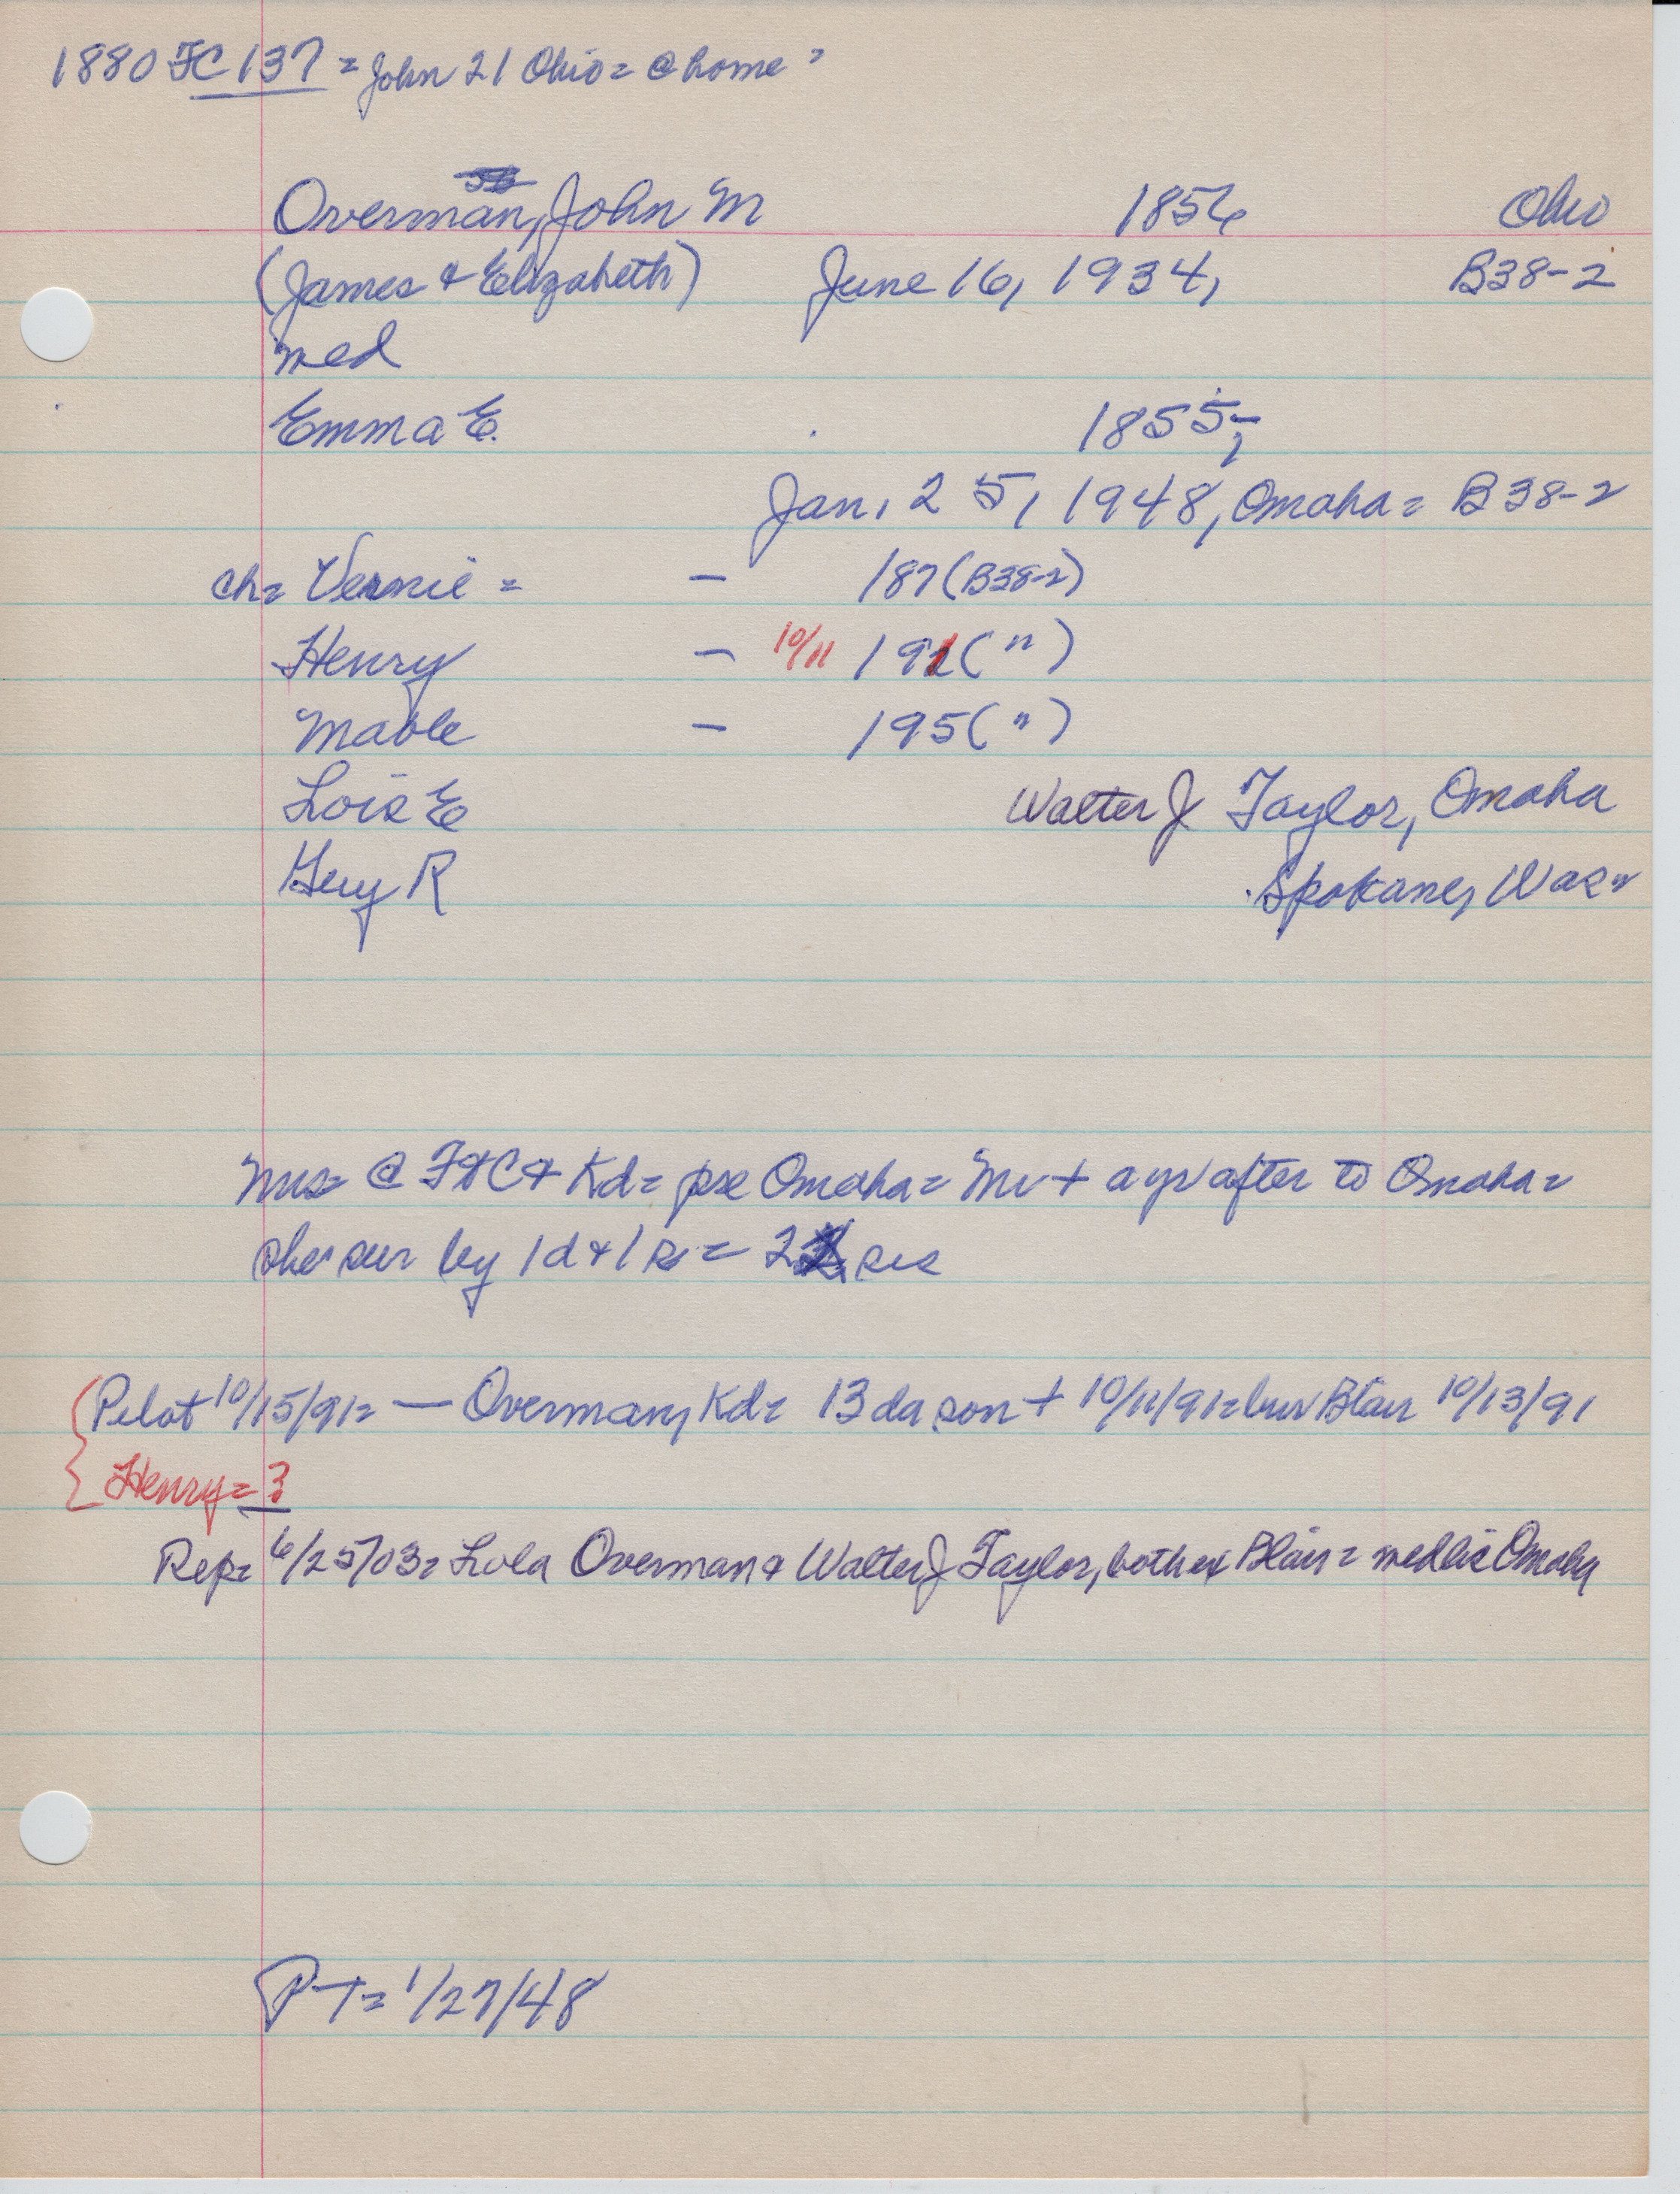 1880 FC 137 = John 21 Ohio = @ home =
Overman, John M 1856 Ohio
(James & Elizabeth) June 16, 1934, B38-2
med
Emma E. 1855,
Jan. 25, 1948, Omaha = B38-2
ch = Vernie = - 187 (B38-2)
Henry - 10/11 191 ( " )
Mable - 195 ( " )
Lois E Walter J Taylor, Omaha
Guy R Spokane, Was
Mrs = @ Ft C & Kd = pre Omaha = Mr + a yr after to Omaha =
she sur by 1 d & 1 s = 2 sis
Pilot 10/15/91 = — Overman, Kd = 13 da son + 10/11/91 = bur Blair 10/13/91
Henry = ?
Rep = 6/25/03 = Lola Overman & Walter J Taylor, both of Blair = med lic Omaha
PT = 1/27/48